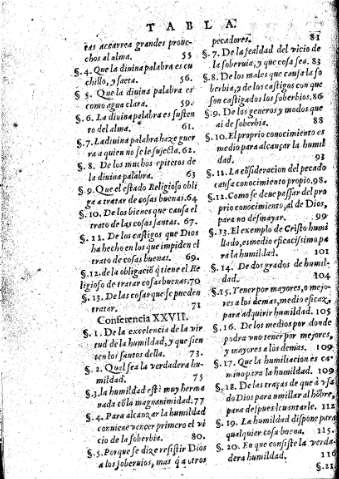 TABLA.
eas acarrea grandes proue-
chos al alma. 55
§. 4. Que la diuina palabra es cu
chillo, y saeta. 56.
§ 5. Que la diuina palabra es
como agua clara. 59.
§. 6. La diuina palabra es susten
to del alma. 61.
§. 7. La diuina palabra haze guer
ra a quien no se le sujecta. 62.
§. 8. De los muchos epitetos de
la diuina palabra. 63
§. 9. Que el estado Religioso obli
ga a tratar de cosas buenas. 64
§. 10. De los bienes que causa el
trato de las cosas santas. 67
§. 11. De los castigos que Dios
ha hecho en los que impiden el
trato de cosas buenas. 69
§. 12. de la obligaciō q̃ tiene el Re
ligioso de tratar cosas buenas 70
§. 13. De las cosas que se pueden
tratar. 71
Conferencia XXVII.
§. 1. De la excelencia de la vir
tud de la humildad, y que sien
ten los santos della. 73.
§. 2. Qual sea la verdadera hu-
mildad. 75
§. 3. la humildad està muy herma
nada cō la magnanimidad. 77
§. 4. Para alcançar la humildad
conuiene vencer primero el vi
cio de la soberbia. 80.
§. 5. Porque se dize resistir Dios
a los soberuios, mas q̃ a otros
pecadores. 81
§. 7. De la fealdad del vicio de
la soberuia, y que cosa sea. 83
§. 8. De los males que causa la so
berbia, y de los castigos con que
son castigados los soberbios. 86
§. 9. De los generos y modos que
ai de soberbia. 88
§. 10. El proprio conocimiento es
medio para alcançar la humil
dad. 93
§. 11. La cōsideracion del pecado
causa conocimiento propio. 98.
§. 12. Como se deue passar del pro
prio conocimiento, al de Dios,
para no desmayar. 99
§. 13. El exemplo de Cristo humi
llado, es medio eficacissimo pa
ra la humildad. 101
§. 14. De dos grados de humil-
dad. 104
§. 15. Tener por mayores, o mejo-
res a los demas, medio eficaz,
para adquirir humildad. 105
§. 16. De los medios por donde
podra vno tener por mejores,
y mayores a los demas. 109
§. 17. Que la humiliacion es ca-
mino pera la humildad. 109
§. 18. De las traças de que à vsa
do Dios para humillar al hōbre,
para despues leuantarle. 112
§. 19. La humildad dispone para
qualquier cosa buena. 115.
§. 20. En que consiste la verda-
dera humildad. 116
§. 21.